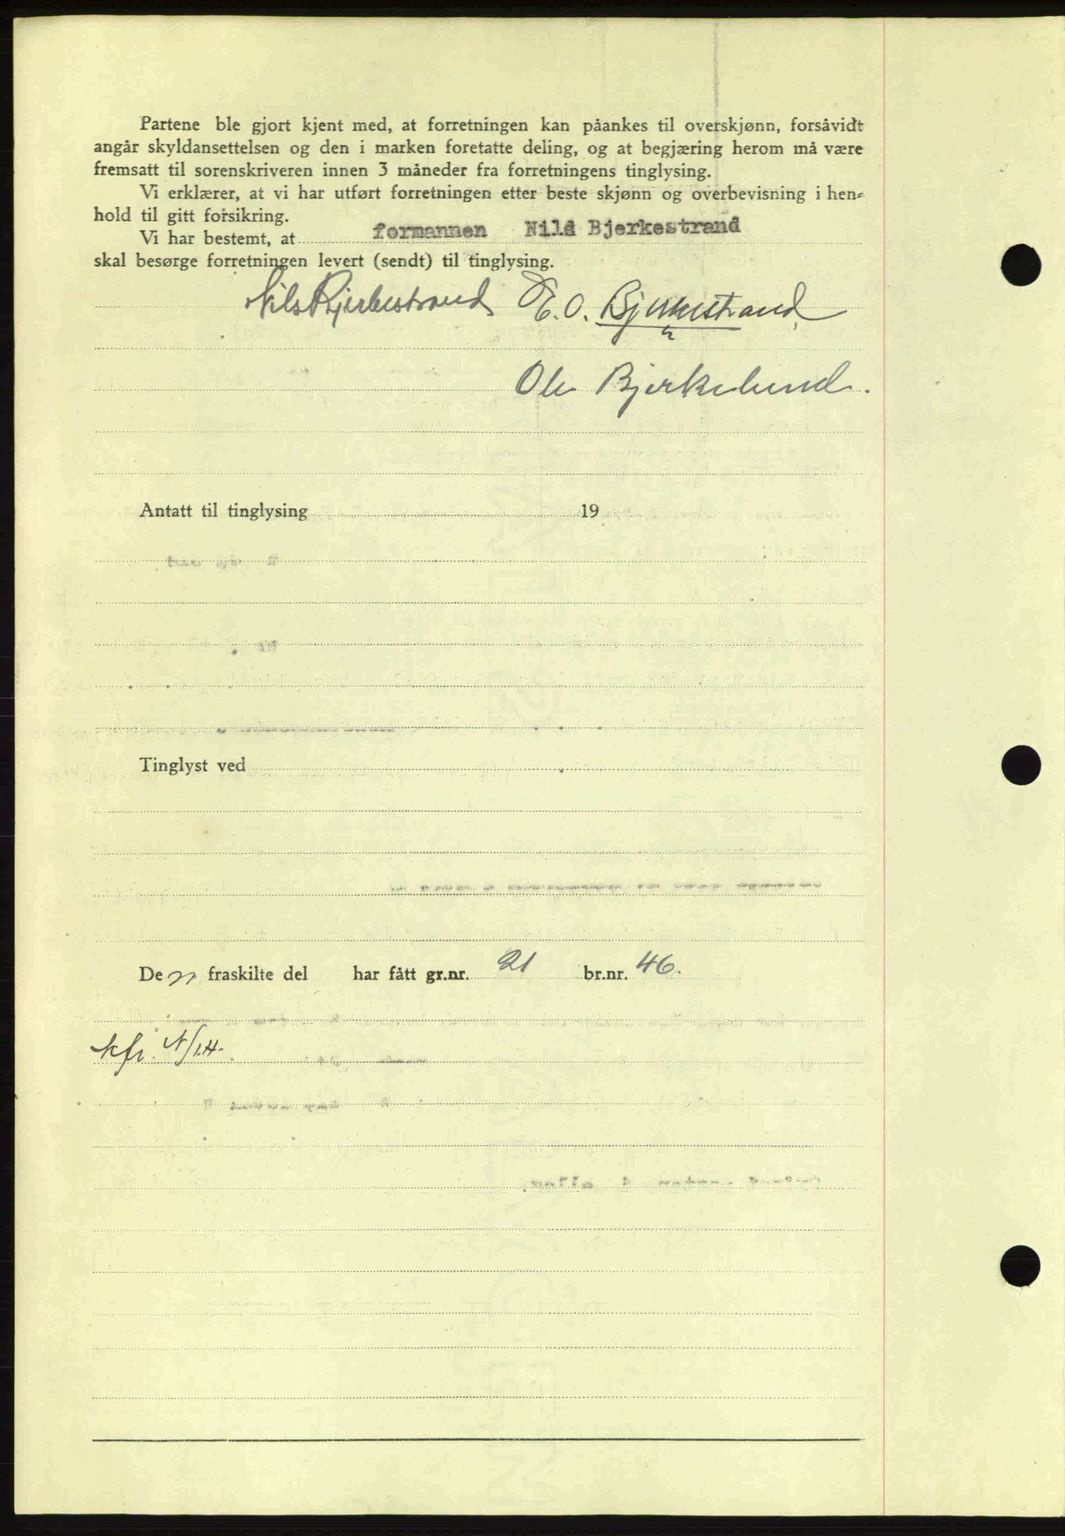 Partene ble gjort kjent med, at forretningen kan påankes til overskjønn, forsåvidt
angår skyldansettelsen og den i marken foretatte deling, og at begjæring herom må være
fremsatt til sorenskriveren innen 3 måneder fra forretningens tinglysing.
Vi erklærer, at vi har utført forretningen etter beste skjønn og overbevisning i hen-
hold til gitt forsikring.
Vi har bestemt, at formannen Nils Bjerkestrand
skal besørge forretningen levert (sendt) til tinglysing.
Nils Bjerkestrand E. O. Bjerkestrand
Ole Bjerkelund.
Antatt til tinglysing 19
Tinglyst ved
De n fraskilte del har fått gr.nr. 21 br.nr. 46.
kfr.